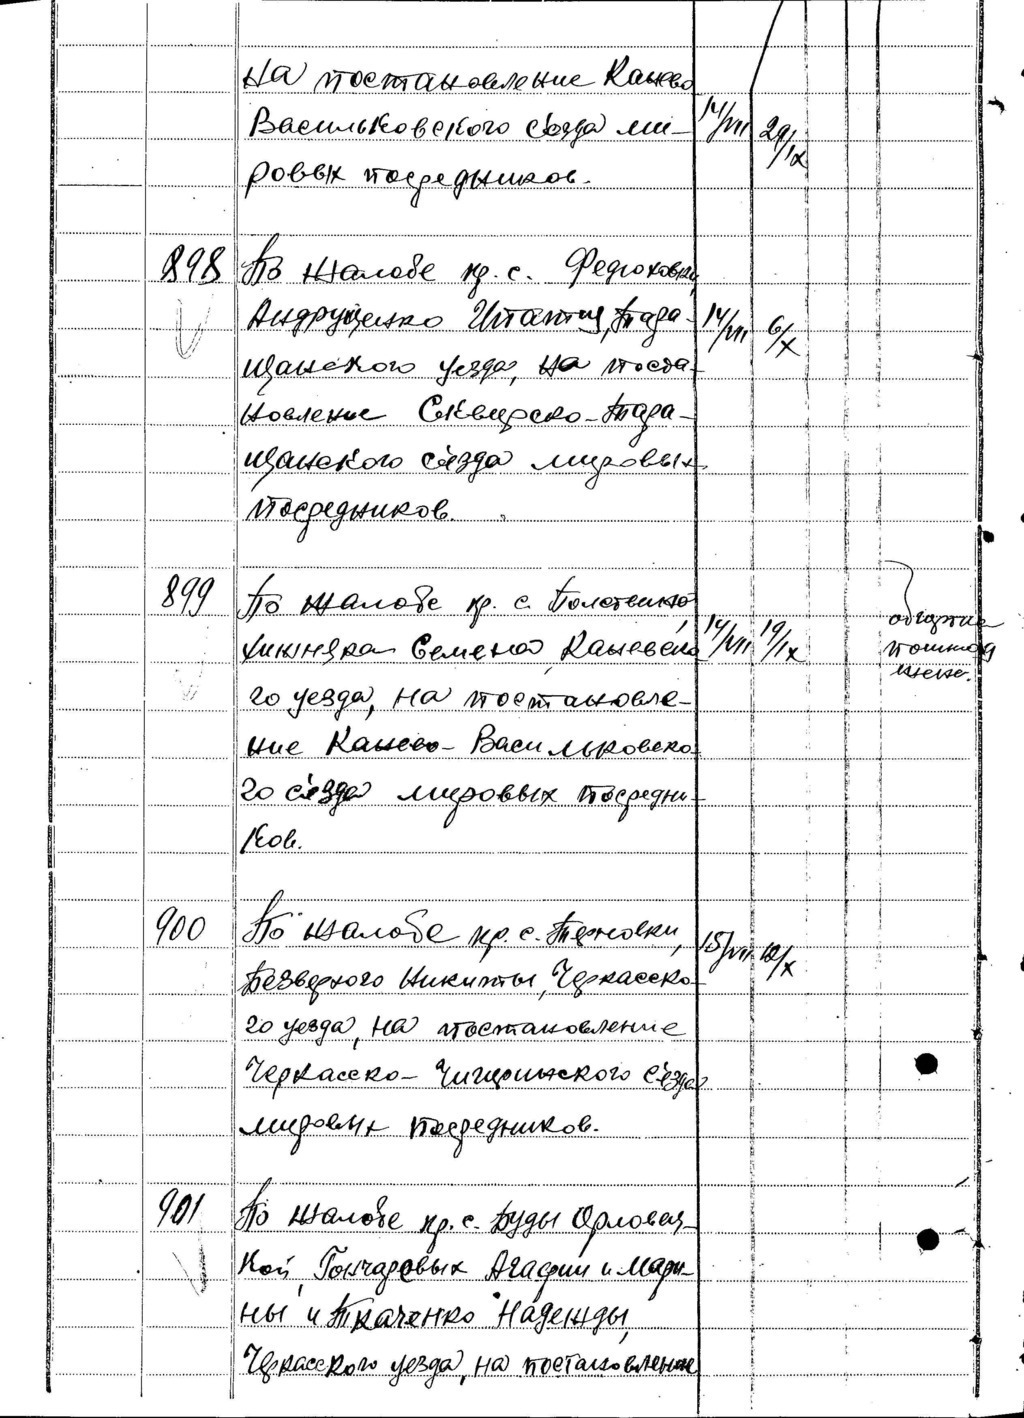 на постановление Канево
Васильковского съезда ми-
ровых посредников.
14/VII 29/IX
898 По жалобе кр. с. Федюковки,
Андрущенко Игнатия, Тара-
14/VII 6/X
щанского уезда, на поста-
новление Сквирско-Тара-
щанского съезда мировых
посредников.
899 По жалобе кр. с. Полствино,
Семена, Каневско
14/VII 19/IX
го уезда, на постановле-
ние Канево-Васильковско
го съезда мировых посредни-
ков.
900 По жалобе кр. с. Терновки,
15/VII 12/X
Безверхого Никиты, Черкасско-
го уезда, на постановление
Черкасско-Чигиринского съезда
мировых посредников.
901 По жалобе кр. с. Буды Орловец-
кой, Гончаровых Агафии и Мари-
ны и Ткаченко Надежды,
Черкасского уезда, на постановление